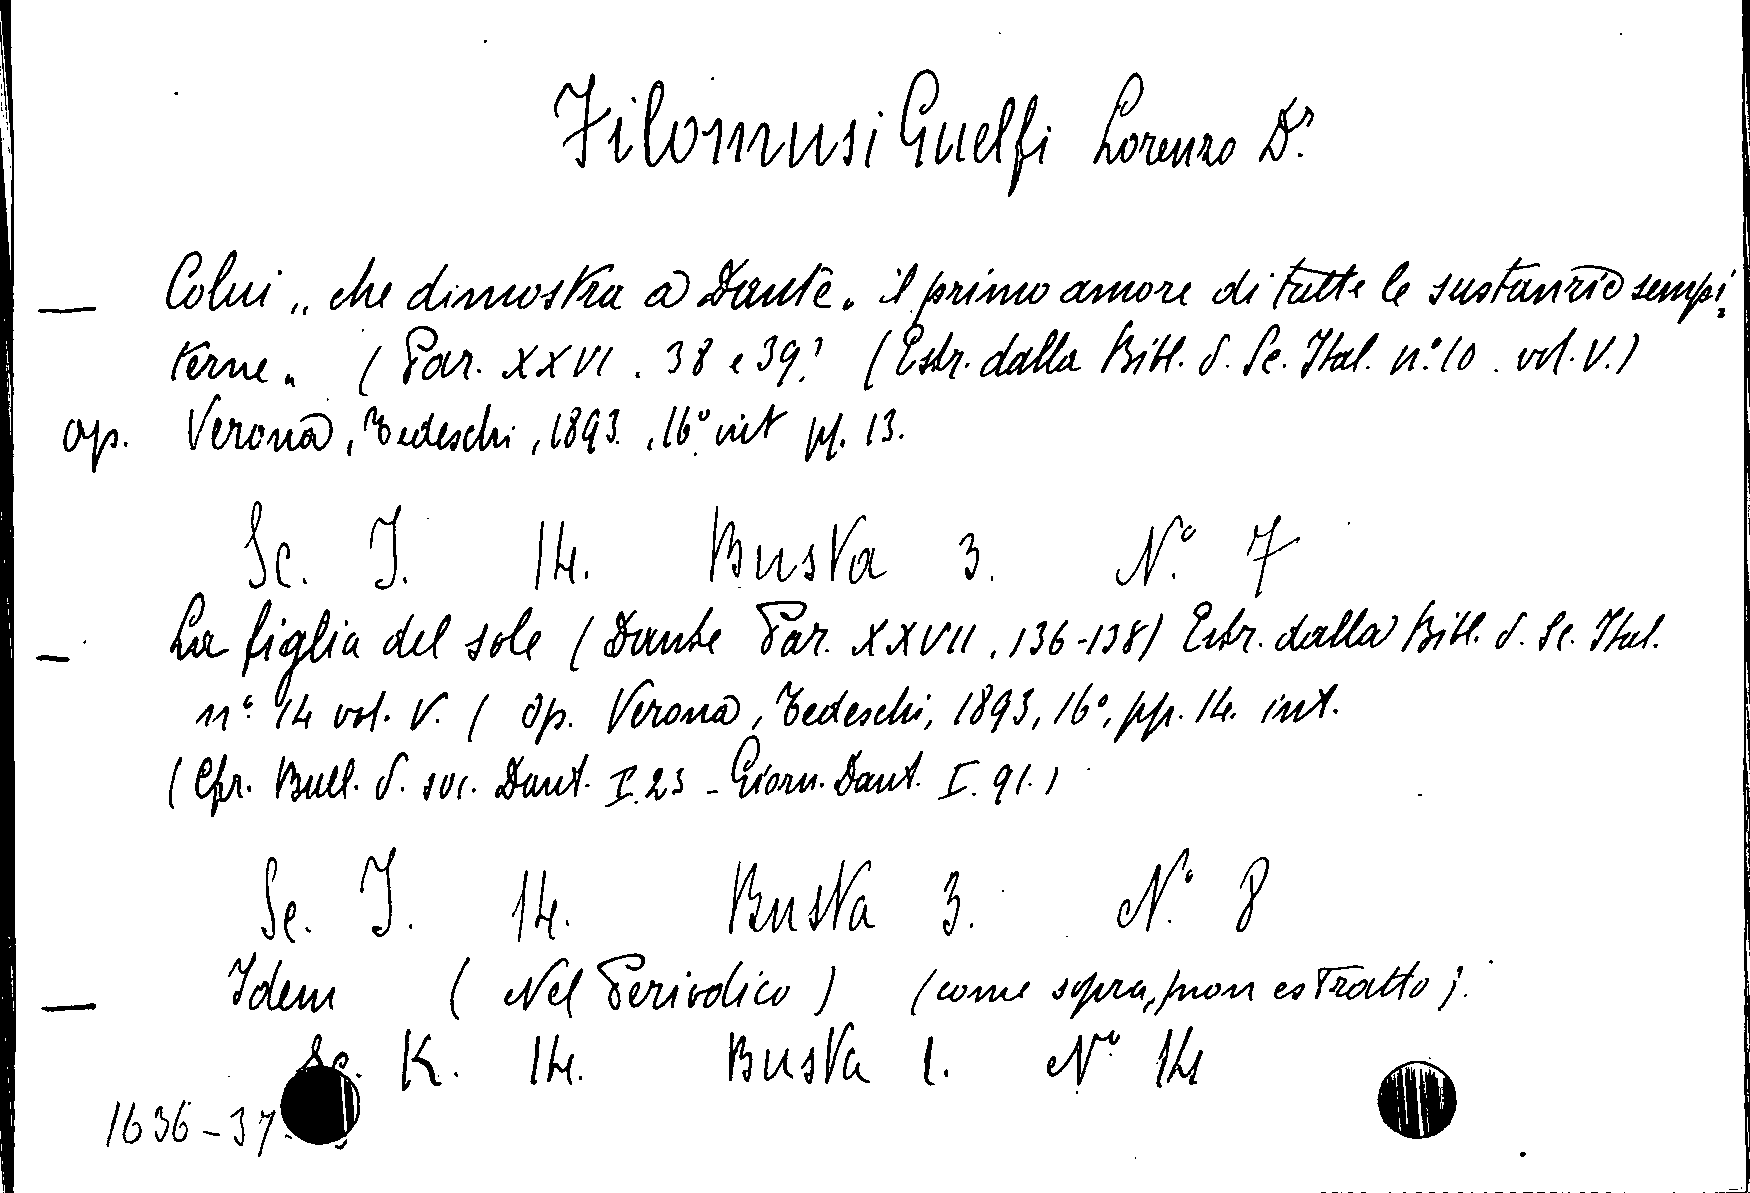 Filomusi Guelfi Lorenzo Dr.
— Colui „ che dimostra a Dante „ il primo amore di tutte le sustanzie sempi-
terne „ ( Par. XXVI . 38 e 39) (Estr. dalla Bibl. d. Sc. Ital. n.° 10 . vol. V.)
op. Verona, Tedeschi, 1893. , 16° int pp. 13.
Sc. J. 14. Busta 3. N.° 7
— La figlia del sole ( Dante Par. XXVII . 136-138) Estr. dalla Bibl. d. Sc. Ital.
n.° 14 vol. V. ( op. Verona, Tedeschi, 1893, 16°, pp. 14. int.
( Cfr. Bull. d. soc. Dant. I. 23 - Giorn. Dant. I. 91. )
Sc. J. 14. Busta 3. N.° 8
— Idem ( Nel Periodico ) (come sopra, non estratto).
Sc. K. 14. Busta 1. N.° 14
1636-37.